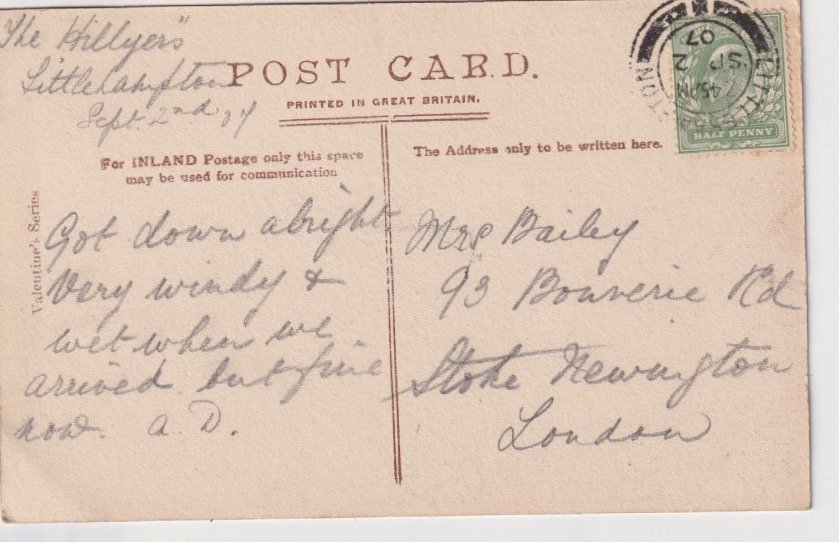 The Hillyers
Littlehampton
Sept. 2nd 07
POST CARD.
PRINTED IN GREAT BRITAIN.
For INLAND Postage only this space
may be used for communication
The Address only to be written here.
Valentine's Series
Got down alright
Very windy &
wet when we
arrived but fine
now. A. D.
Mrs Bailey
93 Bouverie Rd
Stoke Newington
London
LITTLEHAMPTON
7 45 PM
SP 2
07
HALF PENNY